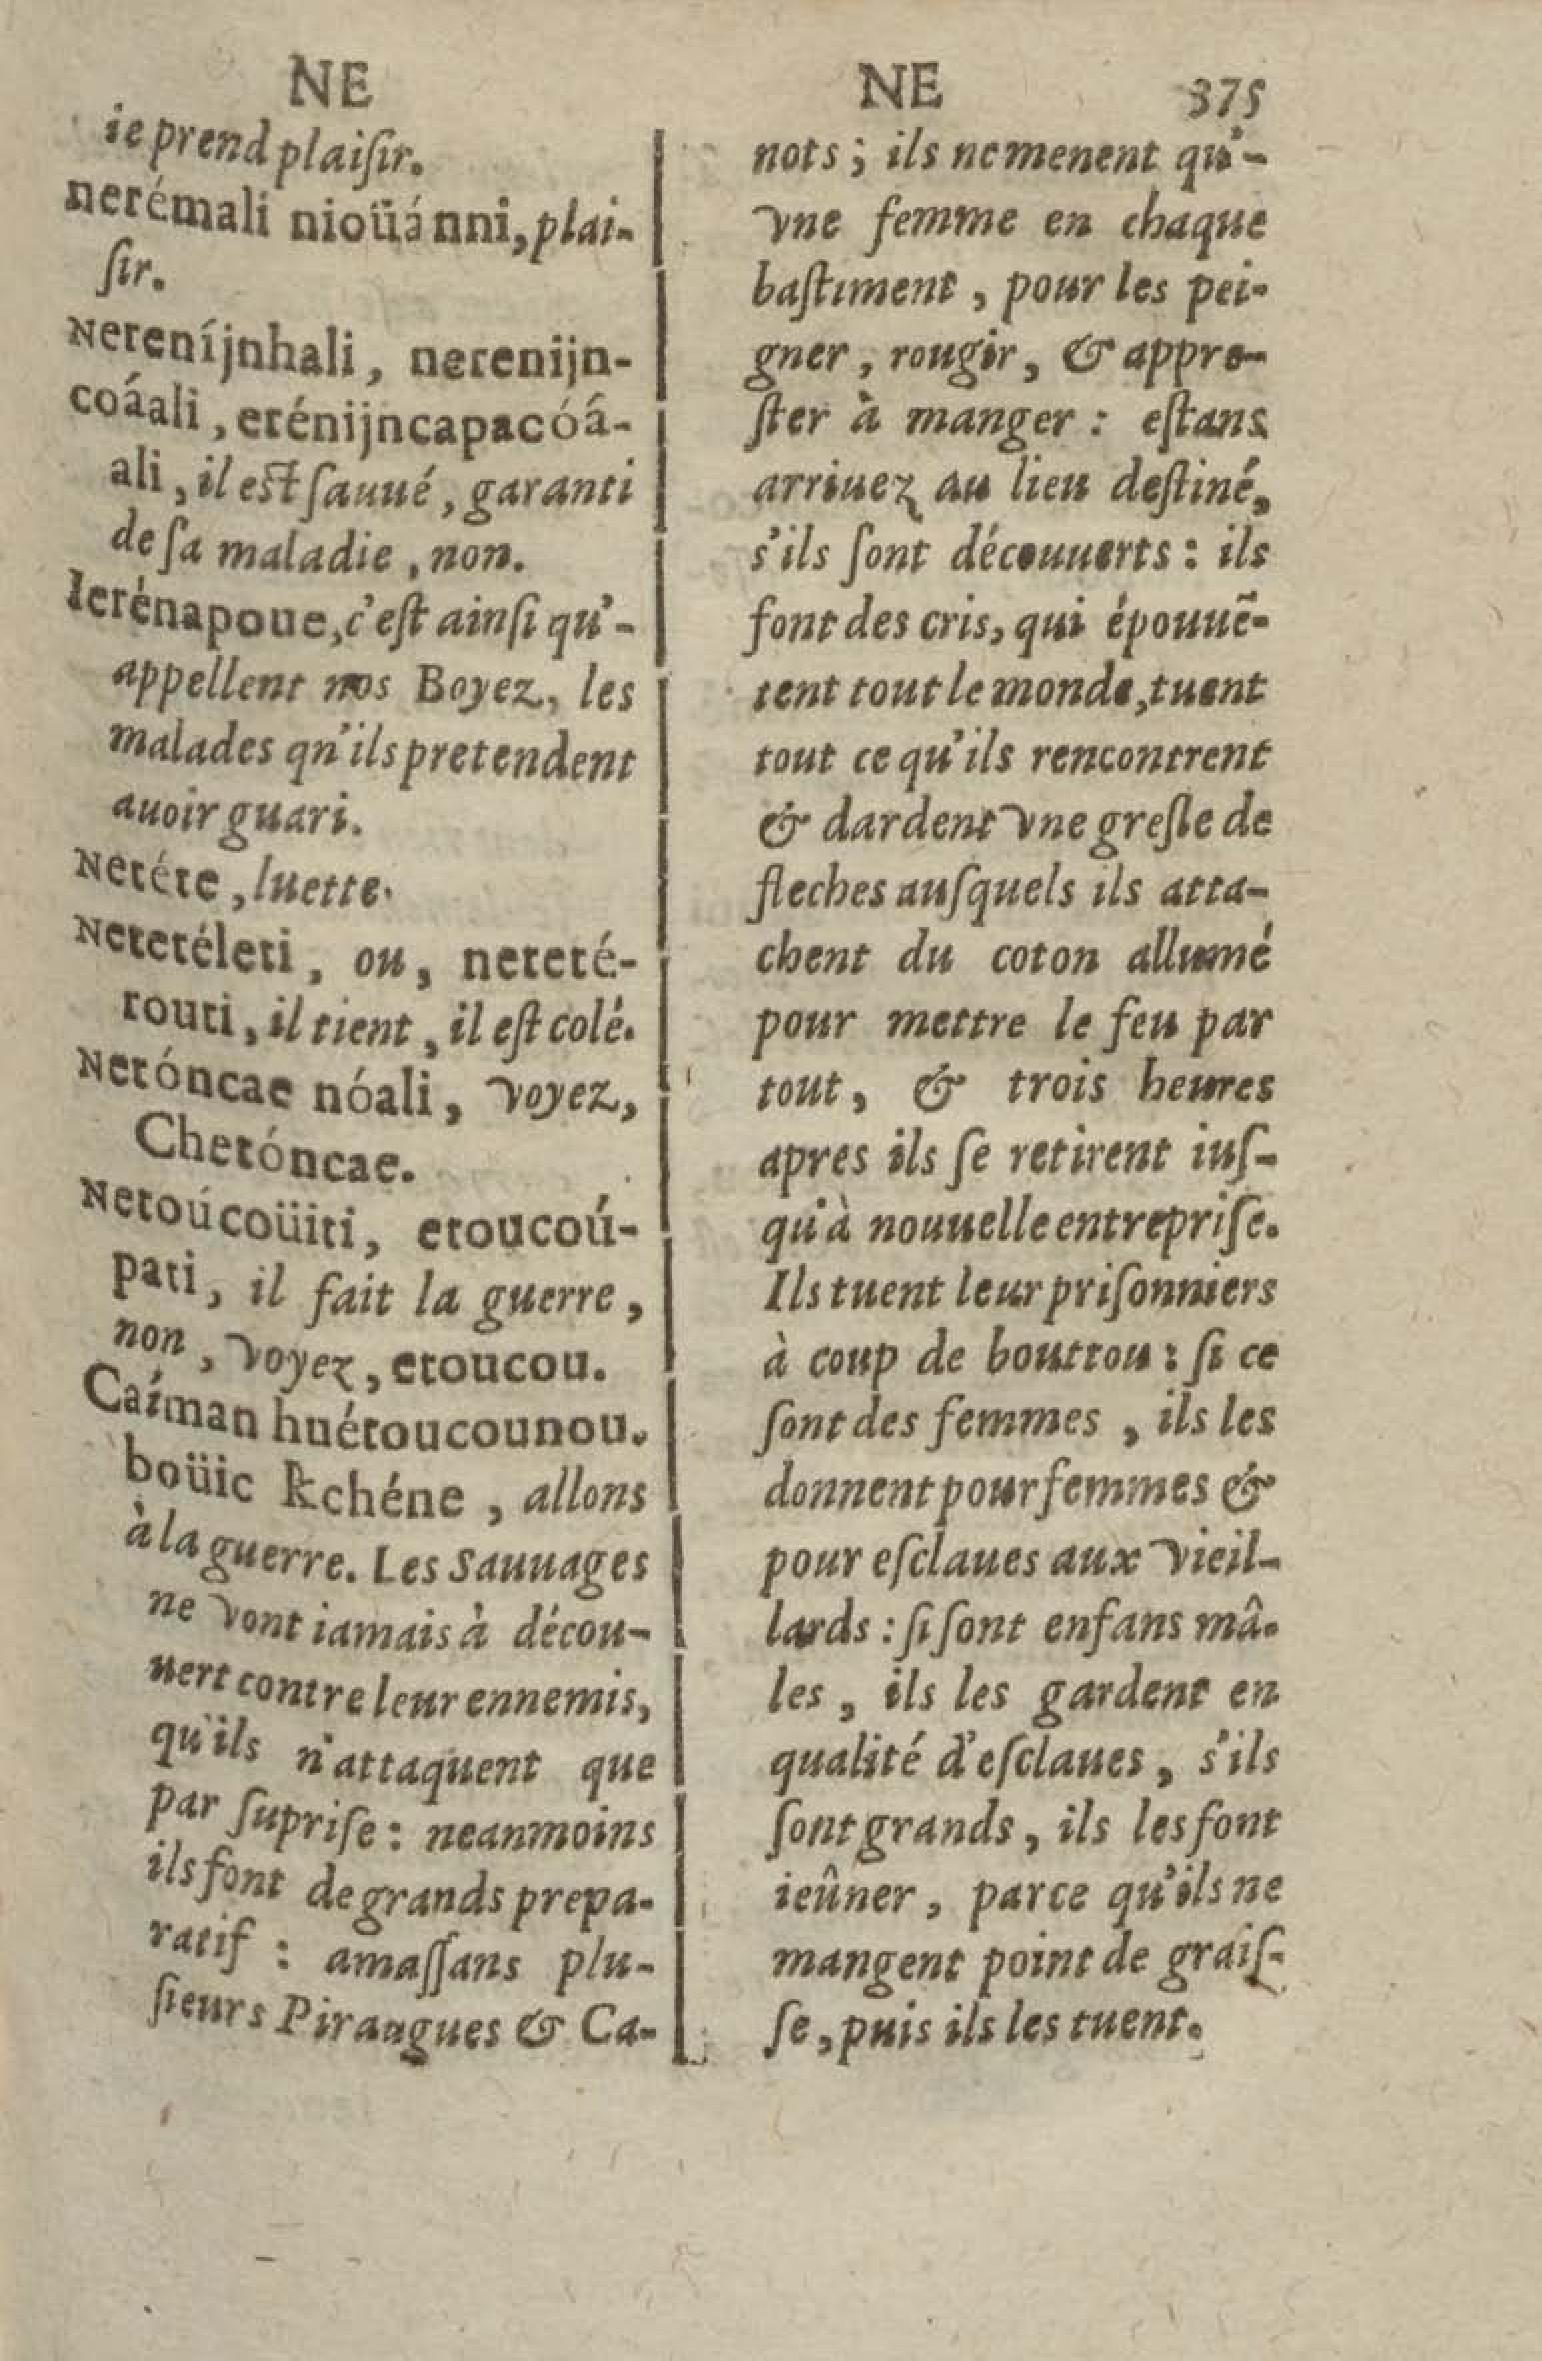 NE
ie prend plaiſir.
nerémali nioüánni, plai-
ſir.
Nereníjnhali, nerenijn-
coáali, erénijncapacóá-
ali, il est ſauué, garanti
de ſa maladie, non.
Ierénapoue, c'eſt ainſi qu'-
appellent nos Boyez, les
malades qn'ils pretendent
auoir guari.
Netére, luette.
Netetéleti, ou, neteté-
routi, il tient, il eſt colé.
Netóncae nóali, voyez,
Chetóncae.
Netoúcoüiti, etoucoú-
pati, il fait la guerre,
non, voyez, etoucou.
Caíman huétoucounou.
boüic kchéne, allons
à la guerre. Les Sauuages
ne vont iamais à décou-
uert contre leur ennemis,
qu'ils n'attaquent que
par ſupriſe: neanmoins
ils font de grands prepa-
ratif: amaſſans plu-
ſieurs Piraugues & Ca-
NE 375
nots; ils ne menent qu'-
vne femme en chaque
baſtiment, pour les pei-
gner, rougir, & appre-
ſter à manger: eſtans
arriuez au lieu deſtiné,
s'ils ſont découuerts: ils
font des cris, qui épouuẽ-
tent tout le monde, tuent
tout ce qu'ils rencontrent
& dardent vne greſle de
fleches auſquels ils atta-
chent du coton allumé
pour mettre le feu par
tout, & trois heures
apres ils ſe retirent iuſ-
qu'à nouuelle entrepriſe.
Ils tuent leur priſonniers
à coup de bouttou: ſi ce
ſont des femmes, ils les
donnent pour femmes &
pour eſclaues aux vieil-
lards: ſi ſont enfans mâ-
les, ils les gardent en
qualité d'eſclaues, s'ils
ſont grands, ils les font
ieûner, parce qu'ils ne
mangent point de graiſ-
ſe, puis ils les tuent.